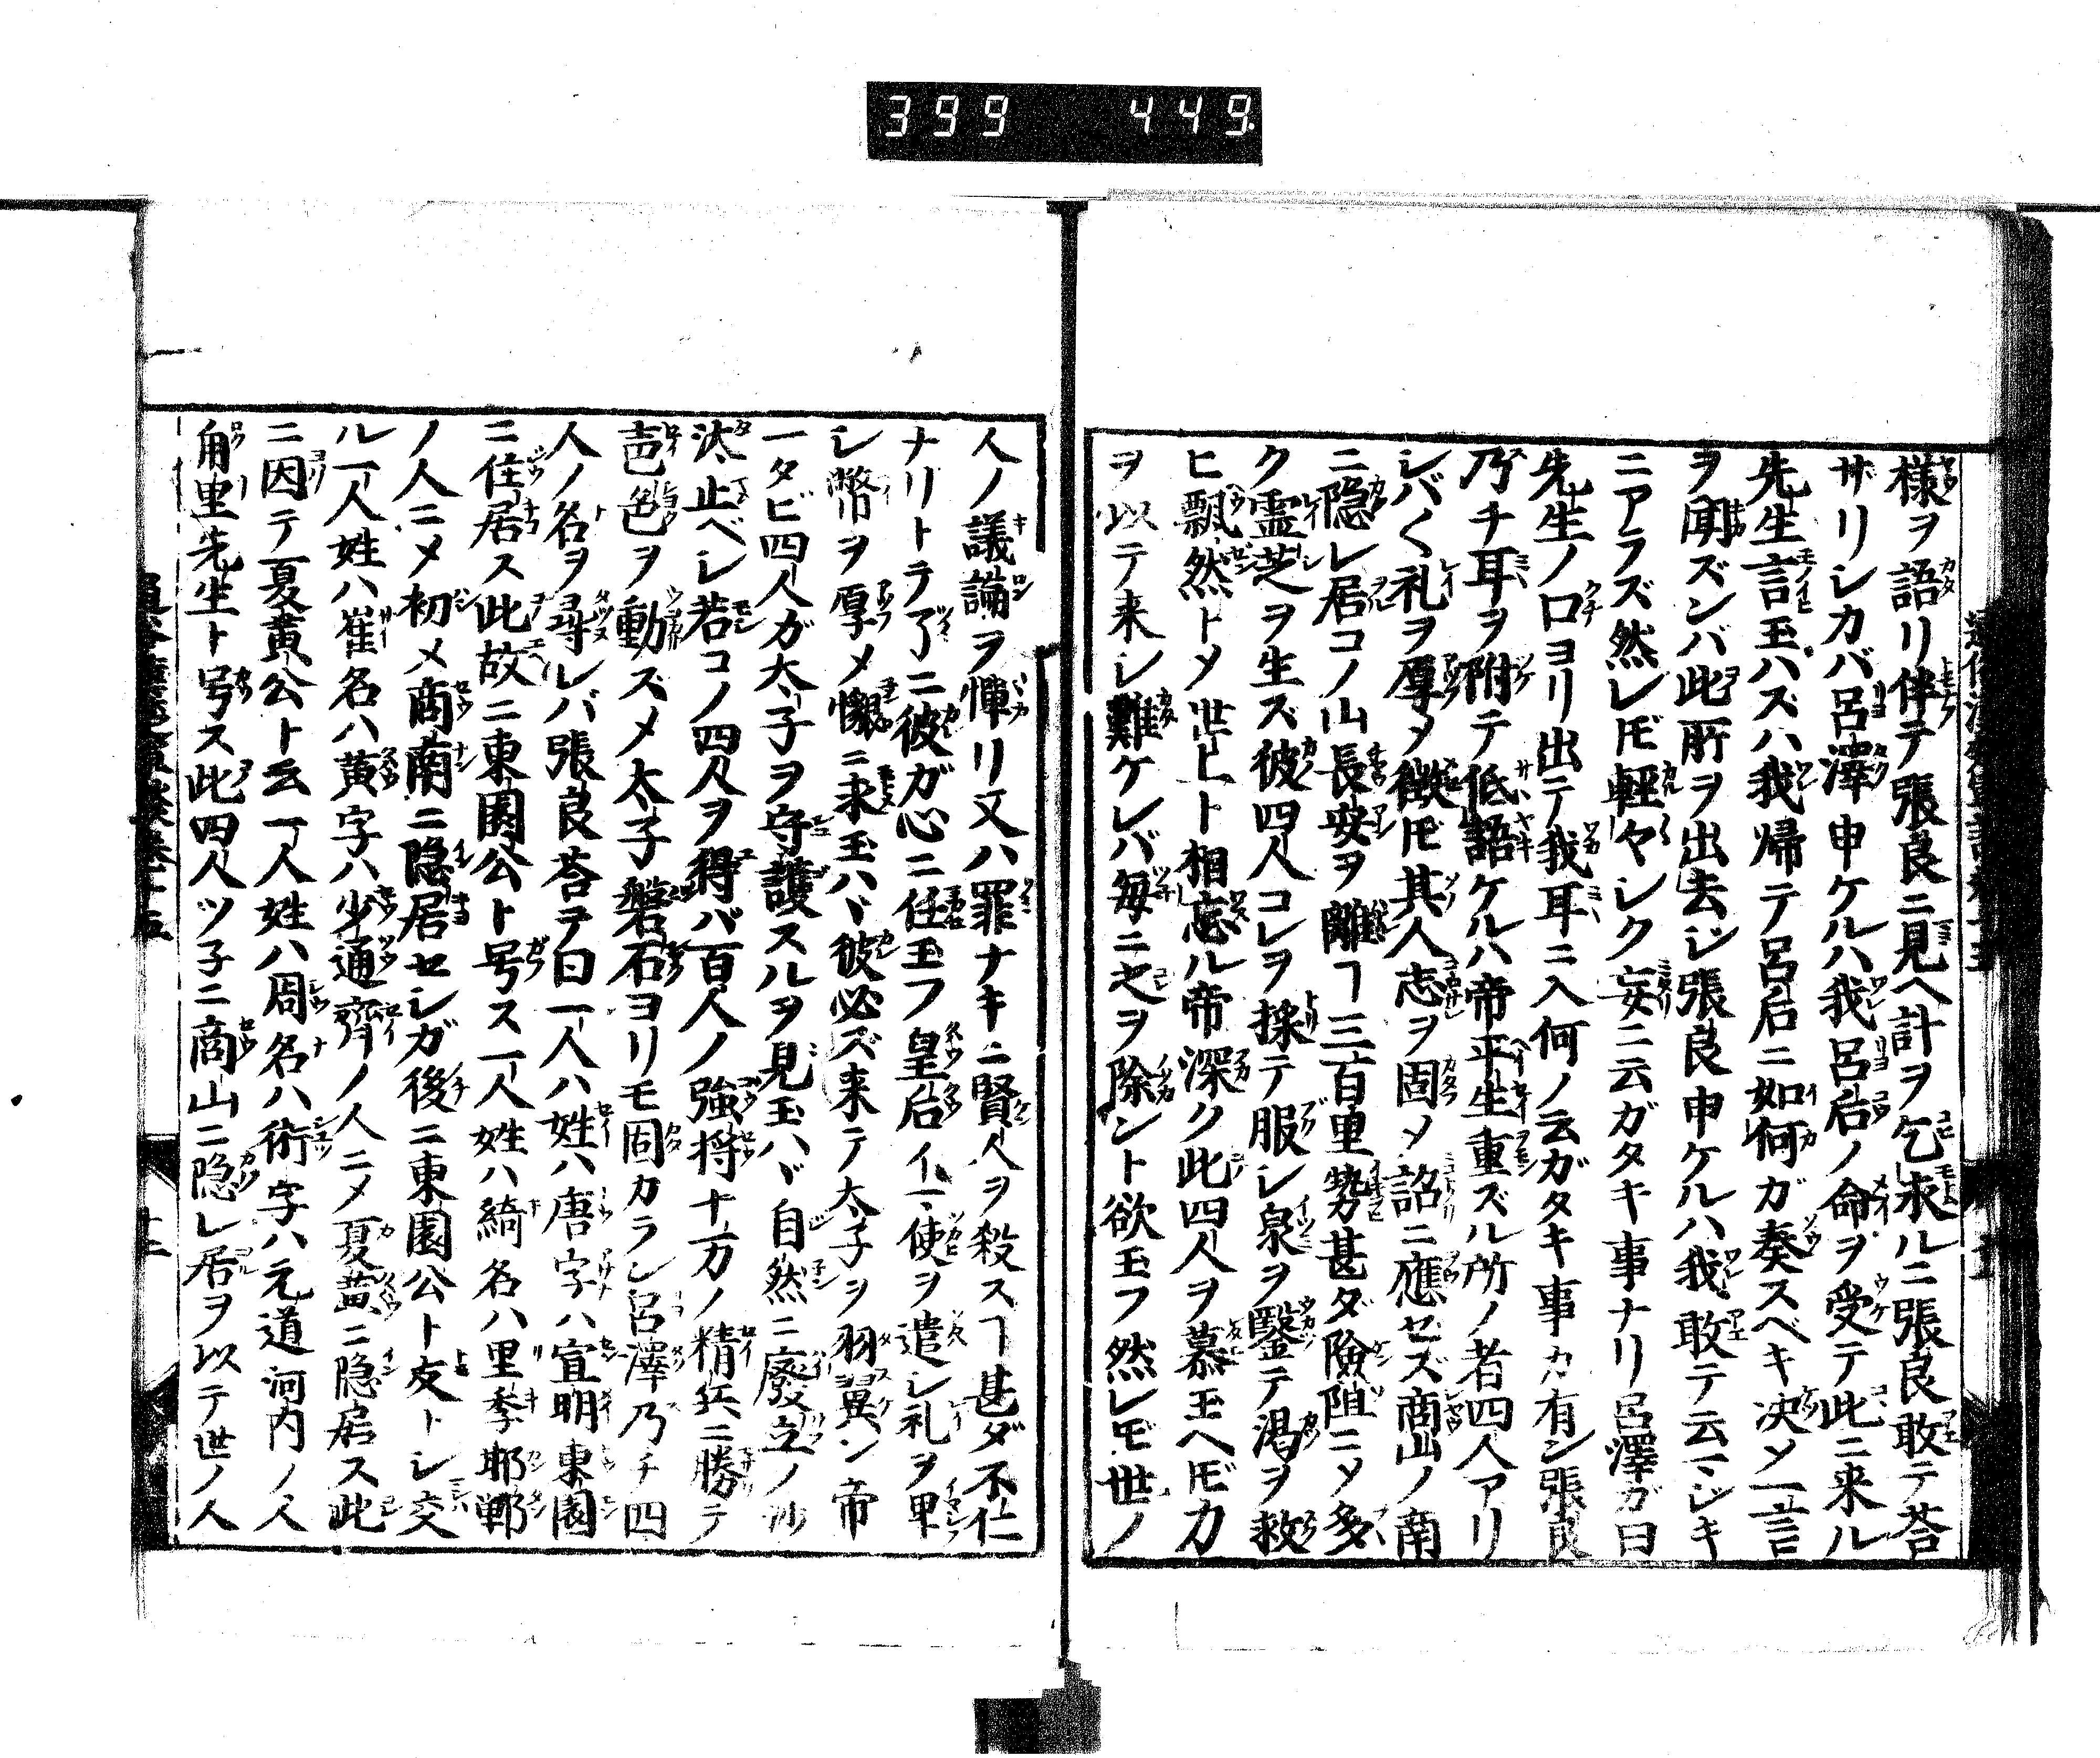 399 449
様ヲ語リ伴テ張良ニ見ヘ計ヲ乞求ルニ張良敢テ荅
ザリシカバ呂澤申ケルハ我呂后ノ命ヲ受テ此ニ来ル
先生言玉ハズハ我帰テ呂后ニ如何ガ奏スベキ决メ一言
ヲ聞ズンバ此所ヲ出去ジ張良申ケルハ我敢テ云マジキ
ニアラズ然レ𪜈輕々シク妄ニ云ガタキ事ナリ呂澤ガ曰
先生ノ口ヨリ出テ我耳ニ入何ノ云ガタキ事カ有ン張良
乃チ耳ヲ附テ低語ケルハ帝平生重ズル所ノ者四人アリ
シバ〱礼ヲ厚メ徴𪜈其人志ヲ固メ詔ニ應セズ商山ノ南
ニ隠レ居コノ山長安ヲ離ヿ三百里勢甚ダ險阻ニメ多
ク霊芝ヲ生ズ彼四人コレヲ採テ服シ泉ヲ鑿テ渇ヲ救
ヒ飄然トメ世上ト相忘ル帝深ク此四人ヲ慕玉ヘ𪜈力
ヲ以テ来シ難ケレバ毎ニ之ヲ除ント欲玉フ然レ𪜈世ノ
人ノ議論ヲ憚リ又ハ罪ナキニ賢人ヲ殺スヿ甚ダ不仁
ナリトテ了ニ彼ガ心ニ任玉フ皇后イマ使ヲ遣シ礼ヲ卑
シ幣ヲ厚メ懇ニ求玉ハヾ彼必ズ来テ太子ヲ羽翼ン帝
一タビ四人ガ太子ヲ守護スルヲ見玉ハヾ自然ニ廢立ノ沙
汰止ベシ若コノ四人ヲ得バ百人ノ強将十万ノ精兵ニ勝テ
声色ヲ動ズメ太子磐石ヨリモ固カラン呂澤乃チ四
人ノ名ヲ尋レバ張良荅テ曰一人ハ姓ハ唐字ハ宣明東園
ニ住居ス此故ニ東園公ト号ス一人姓ハ綺名ハ里季邯鄲
ノ人ニメ初メ商南ニ隠居セシガ後ニ東園公ト友トシ交
ル一人姓ハ崔名ハ黄字ハ少通齊ノ人ニメ夏黄ニ隠居ス此
ニ因テ夏黄公ト云一人姓ハ周名ハ術字ハ元道河内ノ人
甪里先生ト号ス此四人ツ子ニ商山ニ隠レ居ヲ以テ世ノ人